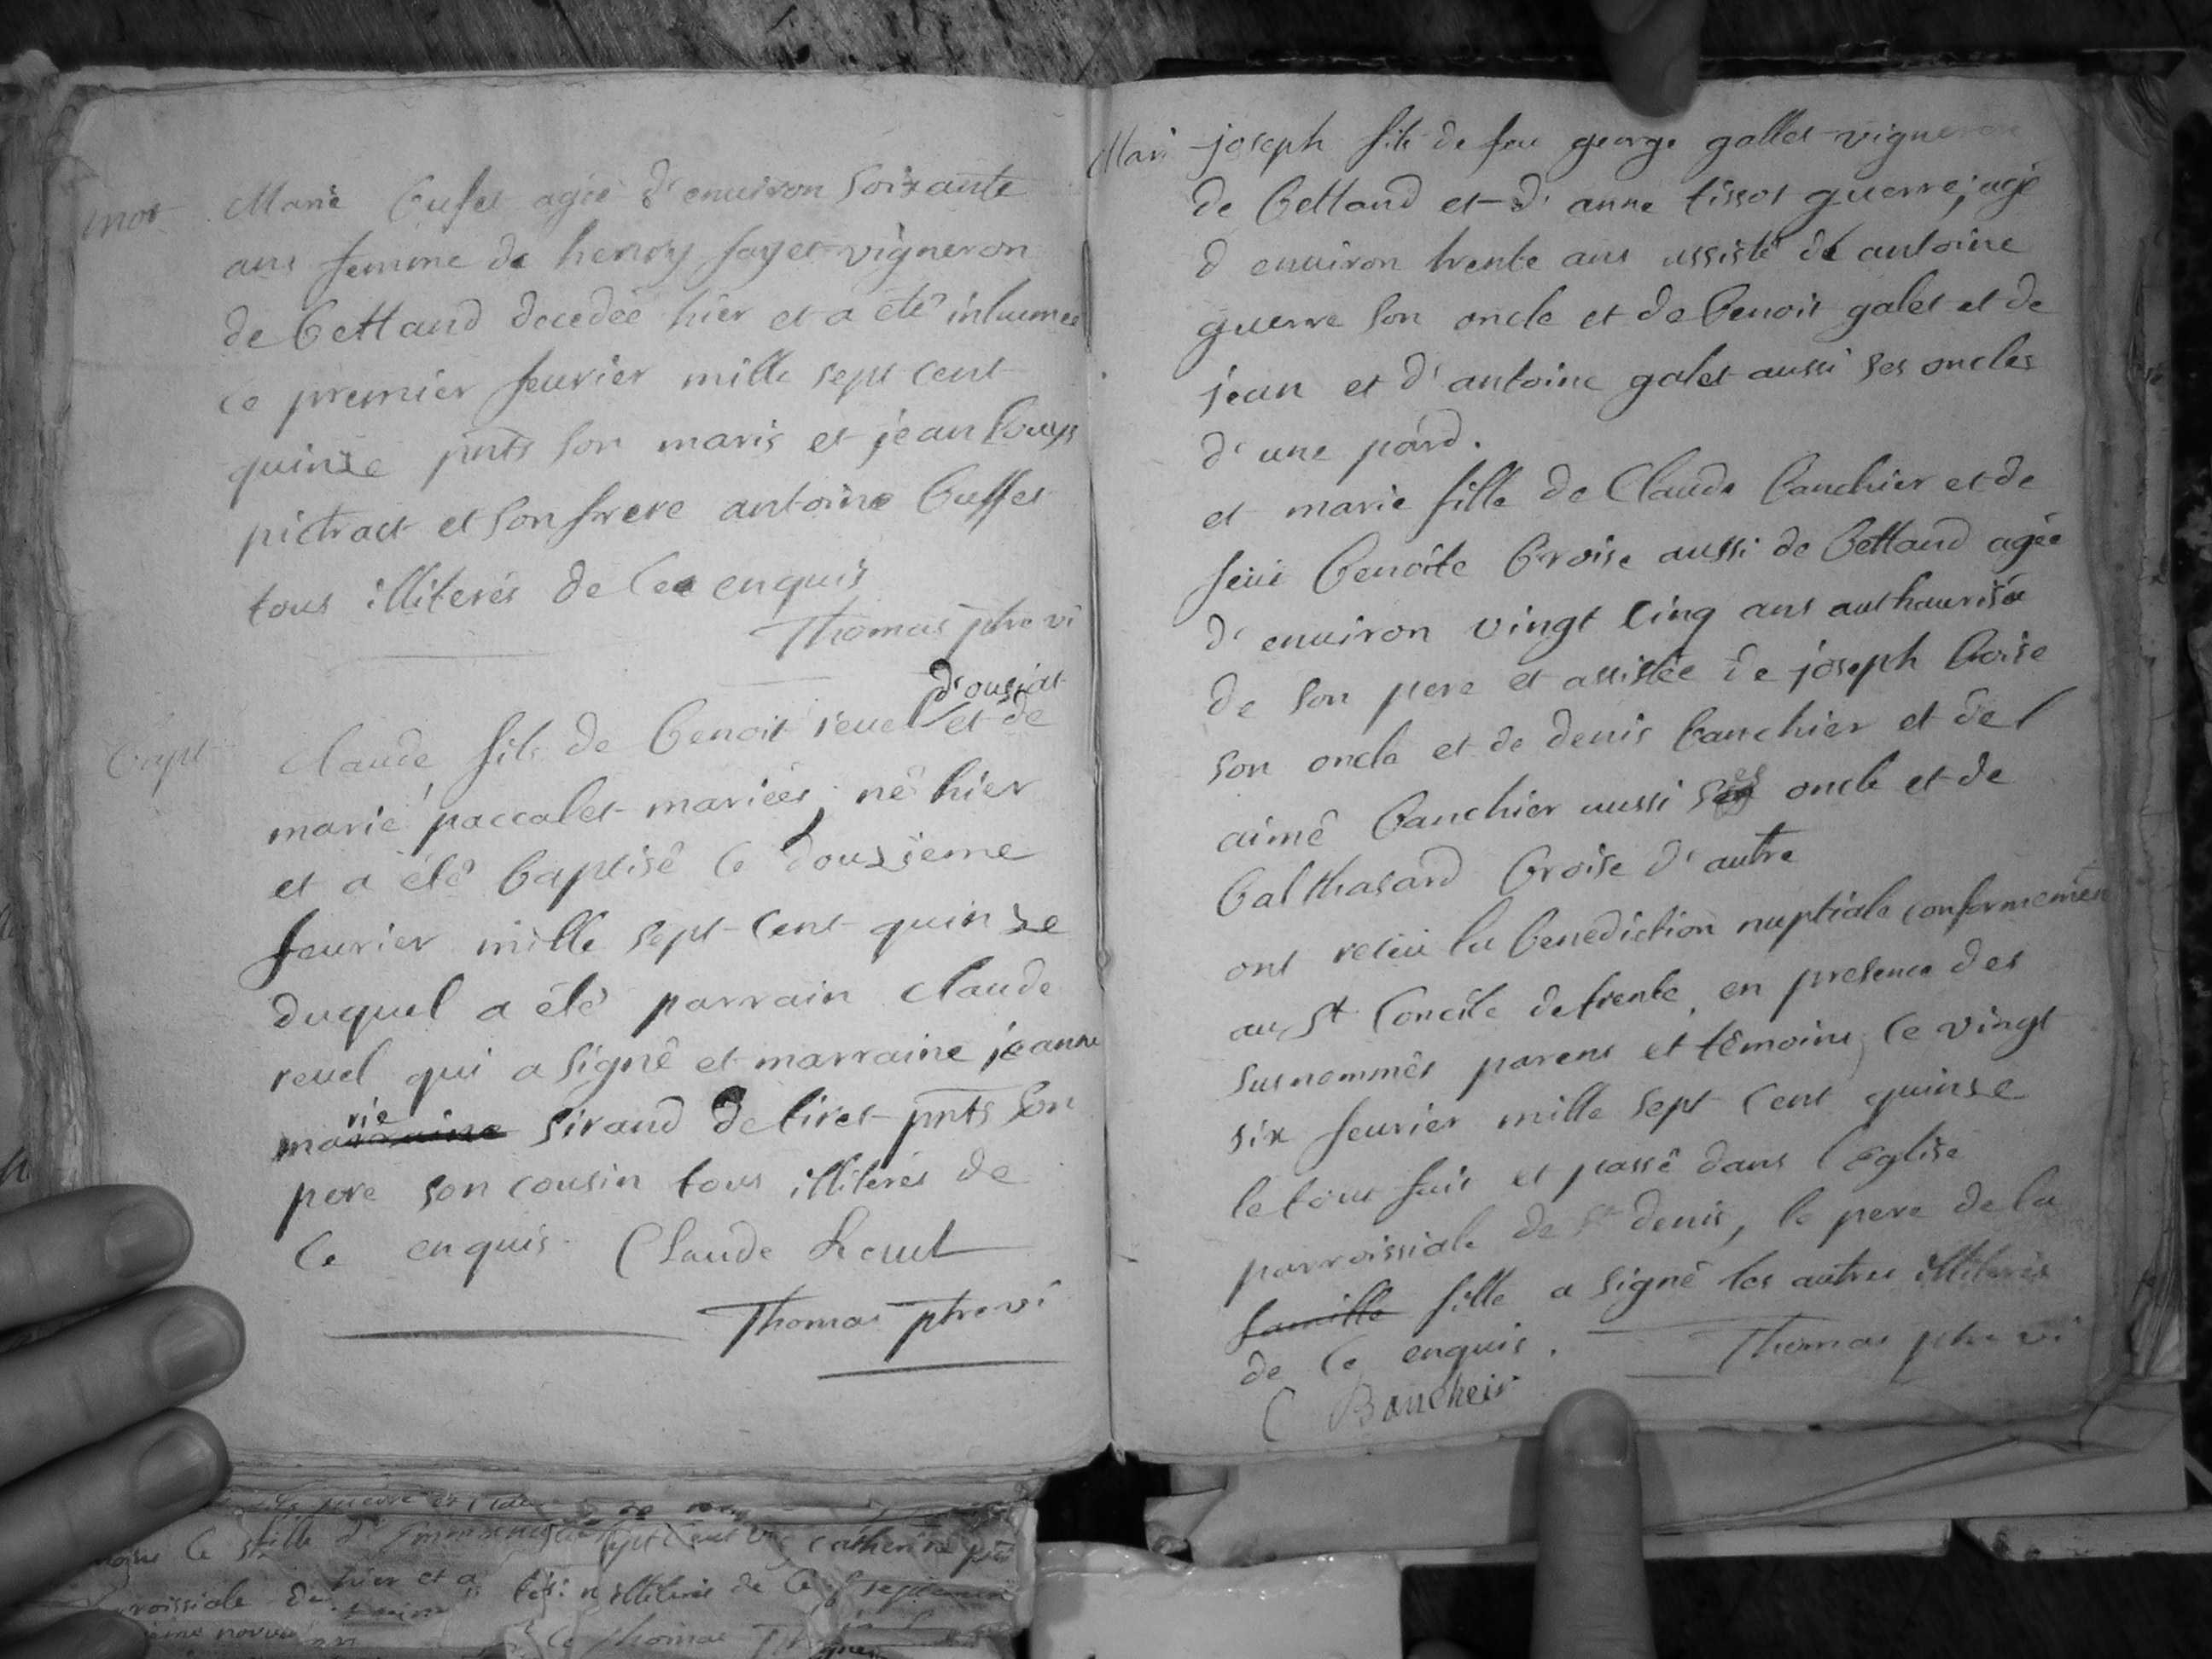 mor
Marie bufet agée d'environ soixante
ans femme de henry fayet vigneron
de bettand decedée hier et a été inhumee
ce premier feurier mille sept cent
quinze pnts son maris et jean louys
pictract et son frere antoine buffet
tous illiterés de ce enquis
Thomas ptre vi
bapt
d'ousiat
claude fils de benoit reuel et de
marie paccalet mariés, né hier
et a été baptisé le douzieme
feurier mille sept cent quinze
duquel a été parrain claude
reuel qui a signé et marraine jeanne
marie sirand de tiret pnts son
pere son cousin tous illiterés de
ce enquis. Claude Reuel
Thomas ptre vi
Mari
joseph fils de feu george gallet vigneron
de bettand et d'anne tissot guerre, agé
d environ trente ans assisté de antoine
guerre son oncle et de benoit galet et de
jean et d'antoine galet aussi ses oncles
d'une pard.
et marie fille de Claude banchier et de
feue benoite broise aussi de bettand agée
d'enuiron vingt cinq ans authaurisée
de son pere et assistée de joseph boise
son oncle et de denis banchier et del
aimé banchier aussi ses oncle et de
balthasard broise d'autre
ont receu la benediction nuptiale conformement
au St Concile de trente, en presence des
susnommés parens et témoins, ce vingt
six feurier mille sept cent quinze
le tout fait et passé dans l'Eglise
parroissiale de St denis, le pere de la
famille fille a signé les autres illiterés
de ce enquis. Thomas ptre vi
C Bancheir
hier et a
illiterés de ce
Thomas